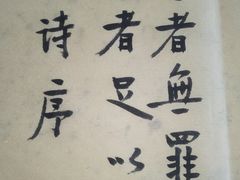 者無罪
者足以
诗序